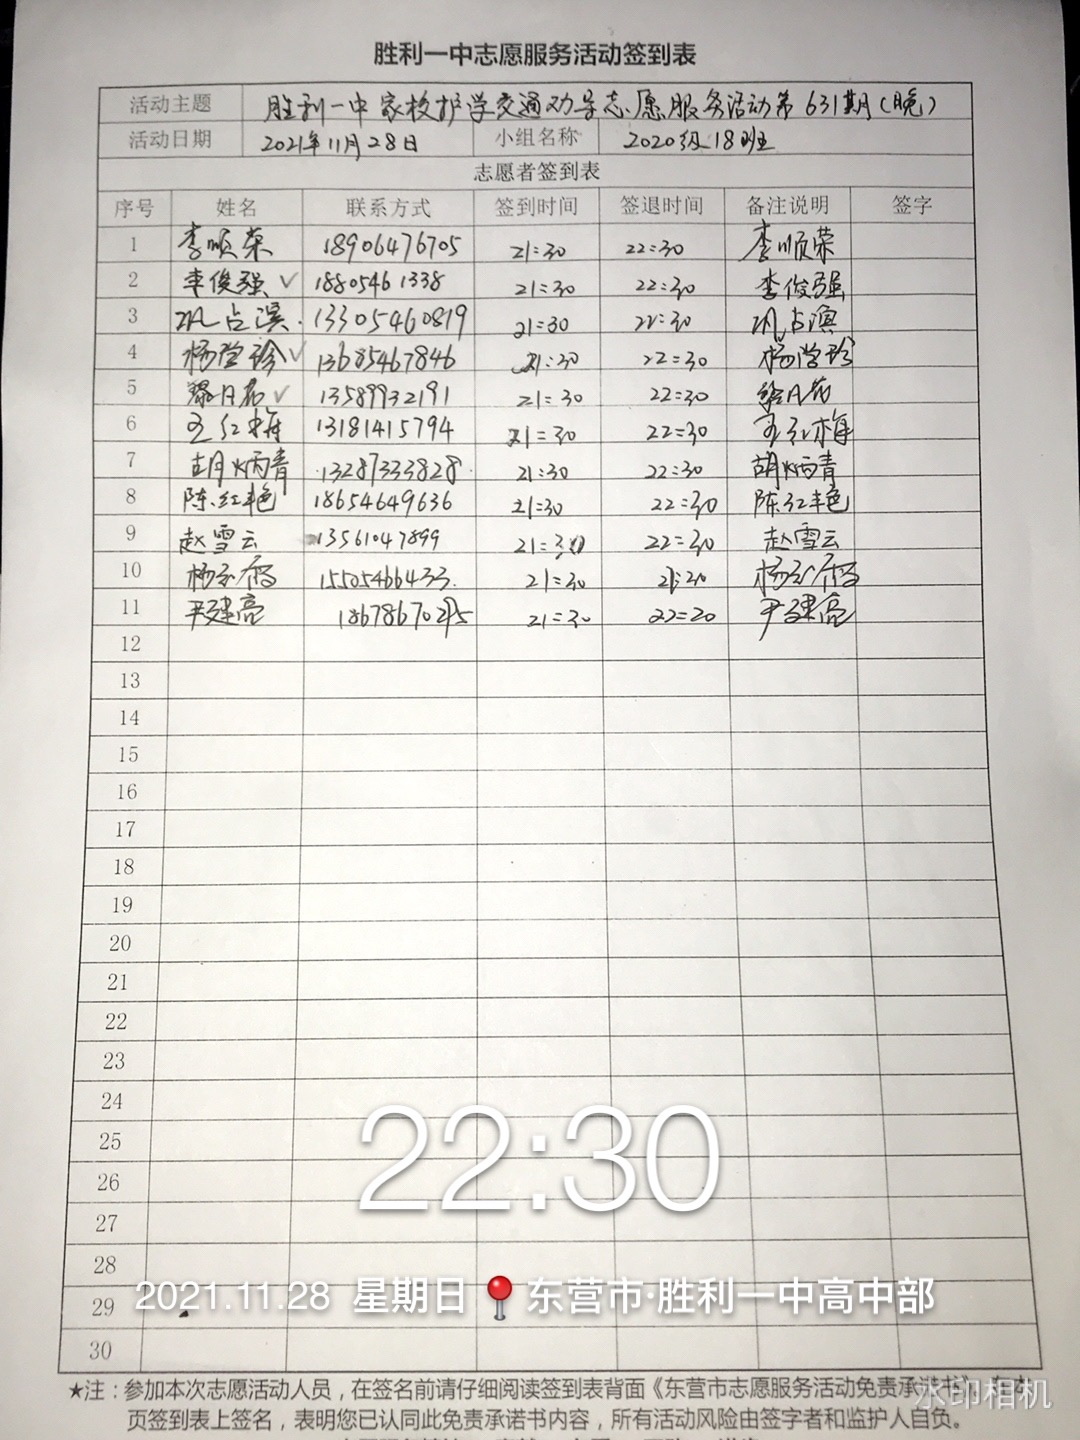 胜利一中志愿服务活动签到表
活动主题 胜利一中家校护学交通劝导志愿服务活动第631期(晚)
活动日期 2021年11月28日 小组名称 2020级18班
志愿者签到表
序号 姓名 联系方式 签到时间 签退时间 备注说明 签字
1 李顺荣 18906476705 21:30 22:30 李顺荣
2 李俊强 ✓ 18805461338 21:30 22:30 李俊强
3 巩占滨 13305460819 21:30 22:30 巩占滨
4 ✓ 13685467846 21:30 22:30
5 ✓ 13589932191 21:30 22:30
6 王红梅 13181415794 21:30 22:30 王红梅
7 胡炳青 13287333828 21:30 22:30 胡炳青
8 陈红艳 18654649636 21:30 22:30 陈红艳
9 赵雪云 13561047899 21:30 22:30 赵雪云
10 15505466433 21:30
11 尹建亮 21:30 22:20 尹建亮
12
13
14
15
16
17
18
19
20
21
22
23
24
25
26
27
28
29
30
22:30
2021.11.28 星期日 东营市·胜利一中高中部
★注:参加本次志愿活动人员,在签名前请仔细阅读签到表背面《东营市志愿服务活动免责承诺书》,
页签到表上签名,表明您已认同此免责承诺书内容,所有活动风险由签字者和监护人自负。
水印相机